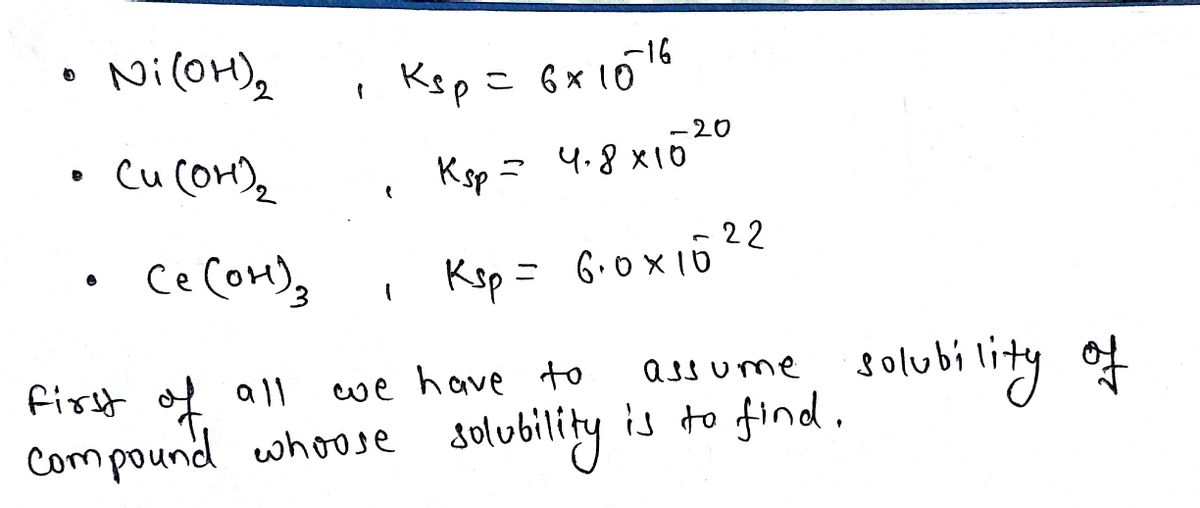 • Ni(OH)₂ , Ksp = 6 × 10⁻¹⁶
• Cu(OH)₂ , Ksp = 4.8 × 10⁻²⁰
• Ce(OH)₃ , Ksp = 6.0 × 10⁻²²
first of all we have to assume solubility of
compound whoose solubility is to find.